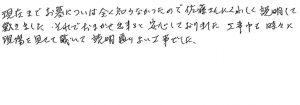 現在までお墓については全く知らなかったので佐藤さんにくわしく説明して
戴きました。それでおまかせ出来ると安心しておりました 工事中も時々
現場を見せて戴いて説明通りよい工事でした。